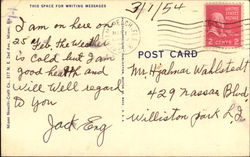 THIS SPACE FOR WRITING MESSAGES
3/1/54
I am on here on
25 of Feb, the Weather
is cold but I am
good health and
Will Well regard
to You
Jack Eng
POST CARD
Mr Hjalmar Wahlstedt
429 Nassau Blvd
Williston Park L.I.
2 CENTS 2